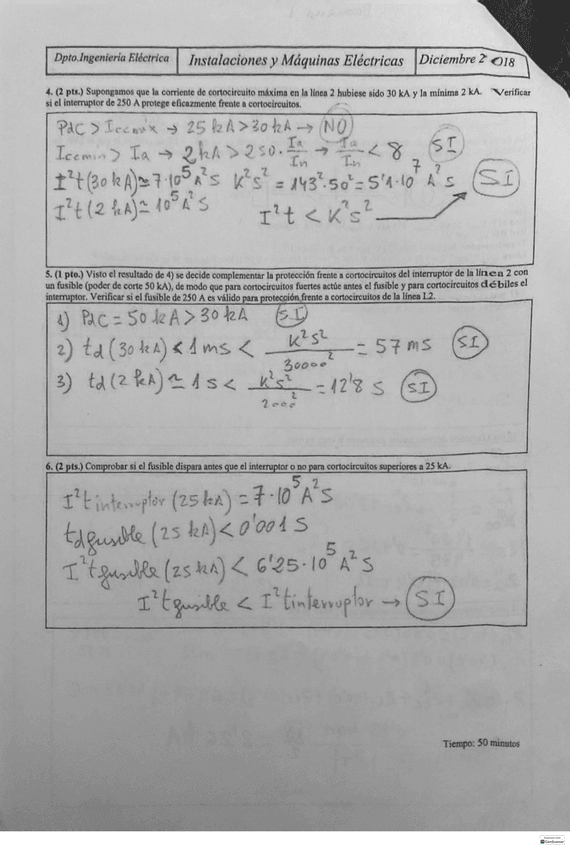 Dpto.Ingeniería Eléctrica Instalaciones y Máquinas Eléctricas Diciembre 2018
4. (2 pts.) Supongamos que la corriente de cortocircuito máxima en la línea 2 hubiese sido 30 kA y la mínima 2 kA. Verificar
si el interruptor de 250 A protege eficazmente frente a cortocircuitos.
PdC > Iccmáx → 25 kA > 30 kA → NO
Iccmin > Ia → 2 kA > 250 · Ia/In → Ia/In < 8 SI
I²t (30 kA) ≃ 7·10⁵ A²S K²S² = 143²·50² = 5'1·10⁷ A²S SI
I²t (2 kA) ≃ 10⁵ A²S I²t < K²S²
5. (1 pto.) Visto el resultado de 4) se decide complementar la protección frente a cortocircuitos del interruptor de la línea 2 con
un fusible (poder de corte 50 kA), de modo que para cortocircuitos fuertes actúe antes el fusible y para cortocircuitos débiles el
interruptor. Verificar si el fusible de 250 A es válido para protección frente a cortocircuitos de la línea L2.
1) PdC = 50 kA > 30 kA SI
2) td (30 kA) < 1 ms < K²S²/30000² = 57 ms SI
3) td (2 kA) ≃ 1 s < K²S²/2000² = 12'8 s SI
6. (2 pts.) Comprobar si el fusible dispara antes que el interruptor o no para cortocircuitos superiores a 25 kA.
I²t interruptor (25 kA) = 7·10⁵ A²S
td fusible (25 kA) < 0'001 S
I²t fusible (25 kA) < 6'25·10⁵ A²S
I²t fusible < I²t interruptor → SI
Tiempo: 50 minutos
CamScanner